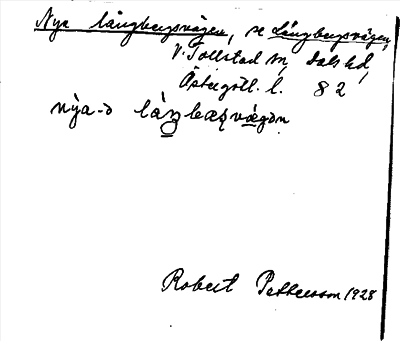 Nya långbergsvägen, se Långbergsvägen,
V. Tollstad sn, Dals hd,
Östergötl. l. 82
Robert Pettersson 1928